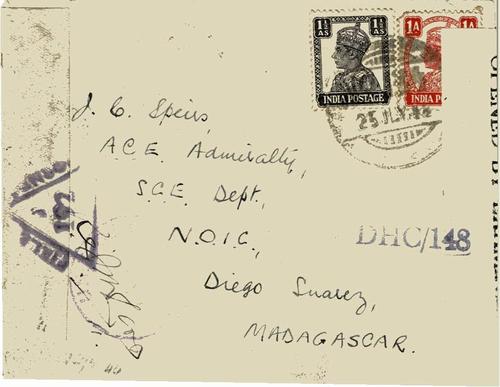 1½ AS 1½ AS
INDIA POSTAGE
1A 1A
INDIA PO
25 JLY
J. C. Speirs,
A.C.E. Admiralty,
S.C.E. Dept.,
N.O.I.C.,
Diego Suarez,
MADAGASCAR.
DHC/148
OPENED BY